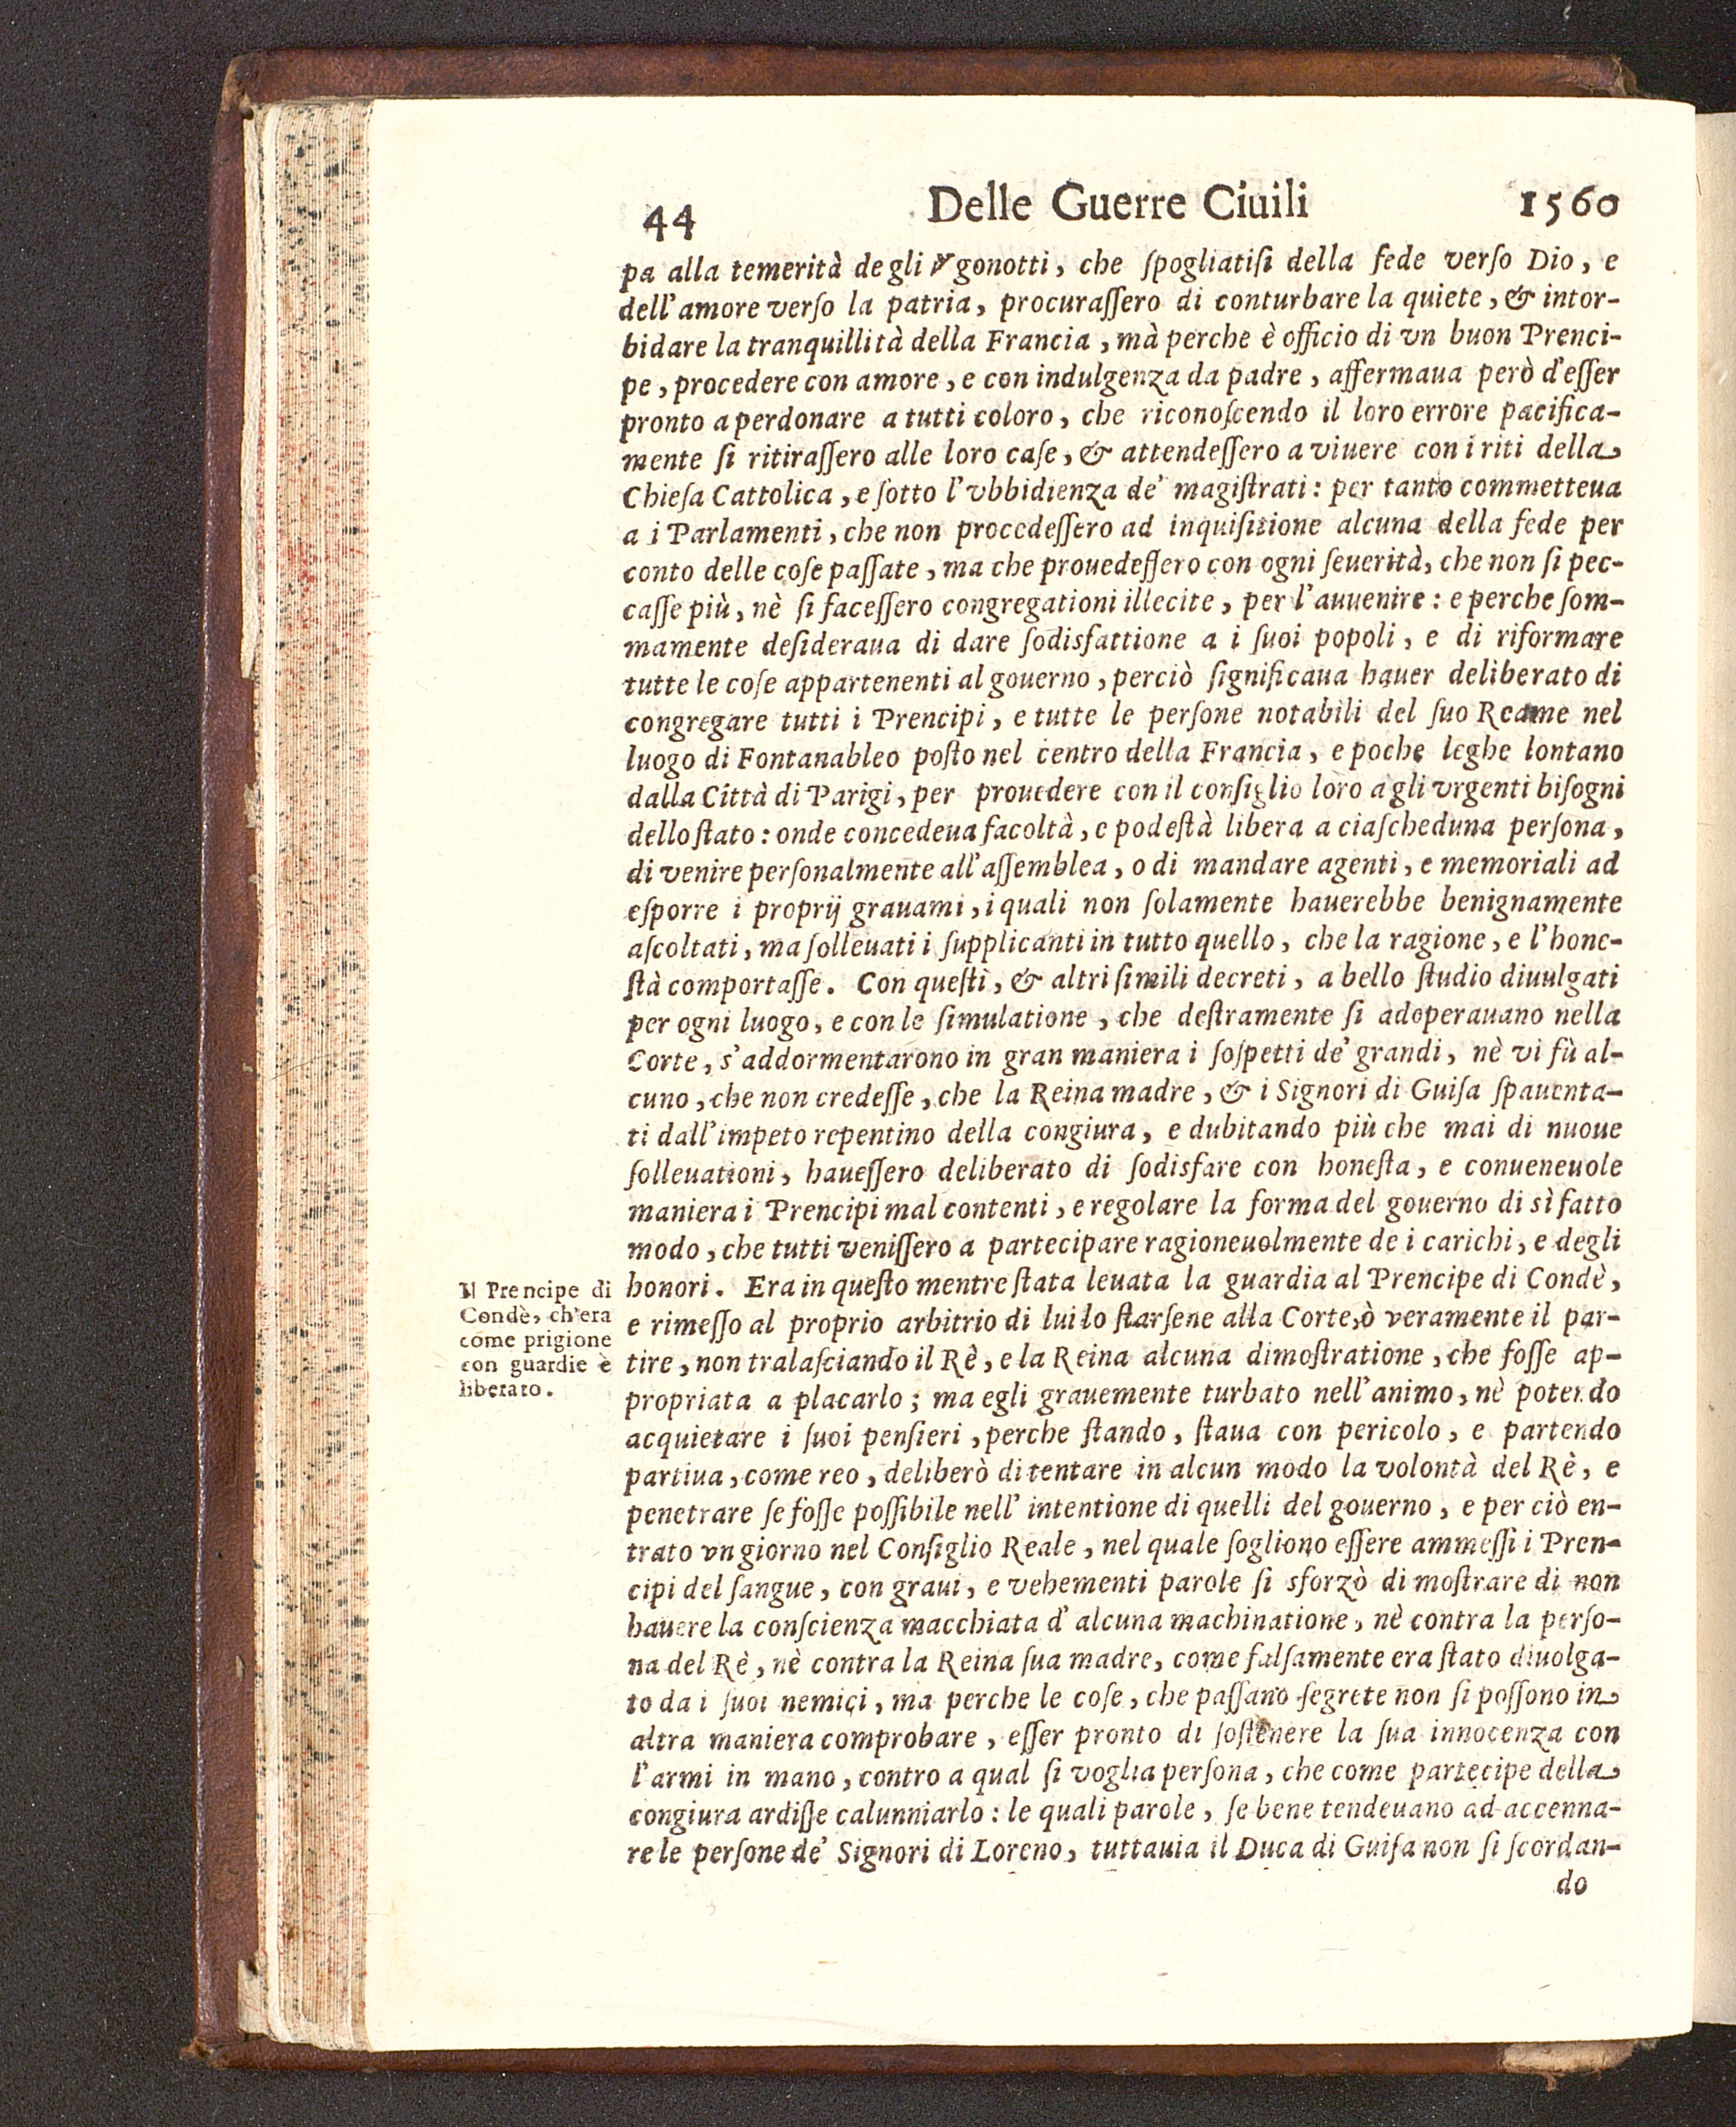 44 Delle Guerre Ciuili 1560
pa alla temerità degli Vgonotti, che ſpogliatiſi della fede verſo Dio, e
dell'amore verſo la patria, procuraſſero di conturbare la quiete, & intor-
bidare la tranquillità della Francia, mà perche è officio di vn buon Prenci-
pe, procedere con amore, e con indulgenza da padre, affermaua però d'eſſer
pronto a perdonare a tutti coloro, che riconoſcendo il loro errore pacifica-
mente ſi ritiraſſero alle loro caſe, & attendeſſero a viuere con i riti della
Chieſa Cattolica, e ſotto l'vbbidienza de' magiſtrati: per tanto commetteua
a i Parlamenti, che non procedeſſero ad inquiſitione alcuna della fede per
conto delle coſe paſſate, ma che prouedeſſero con ogni ſeuerità, che non ſi pec-
caſſe più, nè ſi faceſſero congregationi illecite, per l'auuenire: e perche ſom-
mamente deſideraua di dare ſodisfattione a i ſuoi popoli, e di riformare
tutte le coſe appartenenti al gouerno, perciò ſignificaua hauer deliberato di
congregare tutti i Prencipi, e tutte le perſone notabili del ſuo Reame nel
luogo di Fontanableo poſto nel centro della Francia, e poche leghe lontano
dalla Città di Parigi, per prouedere con il conſiglio loro a gli vrgenti biſogni
dello ſtato: onde concedeua facoltà, e podeſtà libera a ciaſcheduna perſona,
di venire perſonalmente all'aſſemblea, o di mandare agenti, e memoriali ad
eſporre i proprij grauami, i quali non ſolamente hauerebbe benignamente
aſcoltati, ma ſolleuati i ſupplicanti in tutto quello, che la ragione, e l'hone-
ſtà comportaſſe. Con queſti, & altri ſimili decreti, a bello ſtudio diuulgati
per ogni luogo, e con le ſimulatione, che deſtramente ſi adoperauano nella
Corte, s'addormentarono in gran maniera i ſoſpetti de' grandi, nè vi fù al-
cuno, che non credeſſe, che la Reina madre, & i Signori di Guiſa ſpauenta-
ti dall'impeto repentino della congiura, e dubitando più che mai di nuoue
ſolleuationi, haueſſero deliberato di ſodisfare con honeſta, e conueneuole
maniera i Prencipi mal contenti, e regolare la forma del gouerno di sì fatto
modo, che tutti veniſſero a partecipare ragioneuolmente de i carichi, e degli
honori. Era in queſto mentre ſtata leuata la guardia al Prencipe di Condè,
e rimeſſo al proprio arbitrio di lui lo ſtarſene alla Corte, ò veramente il par-
tire, non tralaſciando il Rè, e la Reina alcuna dimoſtratione, che foſſe ap-
propriata a placarlo; ma egli grauemente turbato nell'animo, nè potendo
acquietare i ſuoi penſieri, perche ſtando, ſtaua con pericolo, e partendo
partiua, come reo, deliberò di tentare in alcun modo la volontà del Rè, e
penetrare ſe foſſe poſſibile nell' intentione di quelli del gouerno, e per ciò en-
trato vn giorno nel Conſiglio Reale, nel quale ſogliono eſſere ammeſſi i Pren-
cipi del ſangue, con graui, e vehementi parole ſi sforzò di moſtrare di non
hauere la conſcienza macchiata d' alcuna machinatione, nè contra la perſo-
na del Rè, nè contra la Reina ſua madre, come falſamente era ſtato diuolga-
to da i ſuoi nemici, ma perche le coſe, che paſſano ſegrete non ſi poſſono in
altra maniera comprobare, eſſer pronto di ſoſtenere la ſua innocenza con
l'armi in mano, contro a qual ſi voglia perſona, che come partecipe della
congiura ardiſſe calunniarlo: le quali parole, ſe bene tendeuano ad accenna-
re le perſone de' Signori di Loreno, tuttauia il Duca di Guiſa non ſi ſcordan-
do
Il Prencipe di
Condè, ch'era
come prigione
con guardie è
liberato.